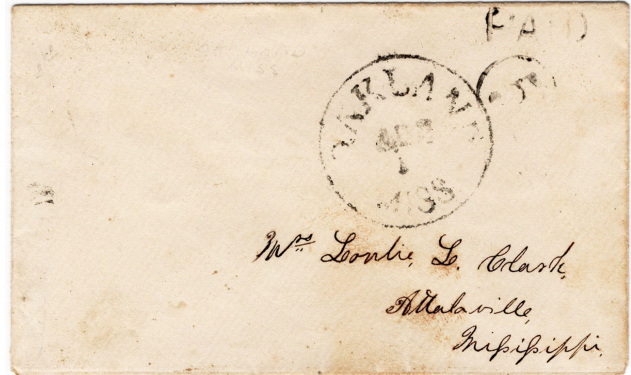 PAID
OAKLAND
APR
1
MISS
Mrs Loulie, L. Clark,
Attalaville,
Missisippi.